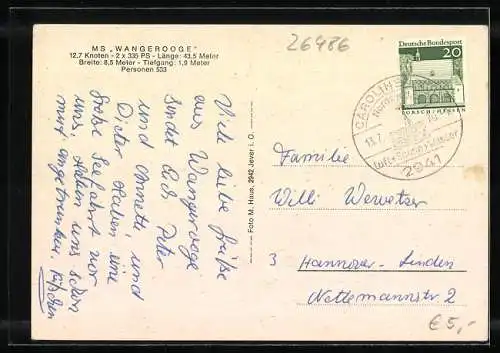 26486
MS „WANGEROOGE"
12,7 Knoten - 2 x 335 PS - Länge: 43,5 Meter
Breite: 8,5 Meter - Tiefgang: 1,9 Meter
Personen 533
Viele liebe Grüße
aus Wangerooge
sendet Euch Peter
und Annette, und
Dieter. Haben eine
große Seefahrt vor
uns. Haben uns schon
mut angetrunken.
Foto M. Haus, 2942 Jever i. O.
Deutsche Bundespost
20
LORSCH/HESSEN
CAROLINENSIEL
13.7.
2941
Familie
Willi Wewetzer
3 Hannover-Linden
Nottemannstr. 2
€5,-